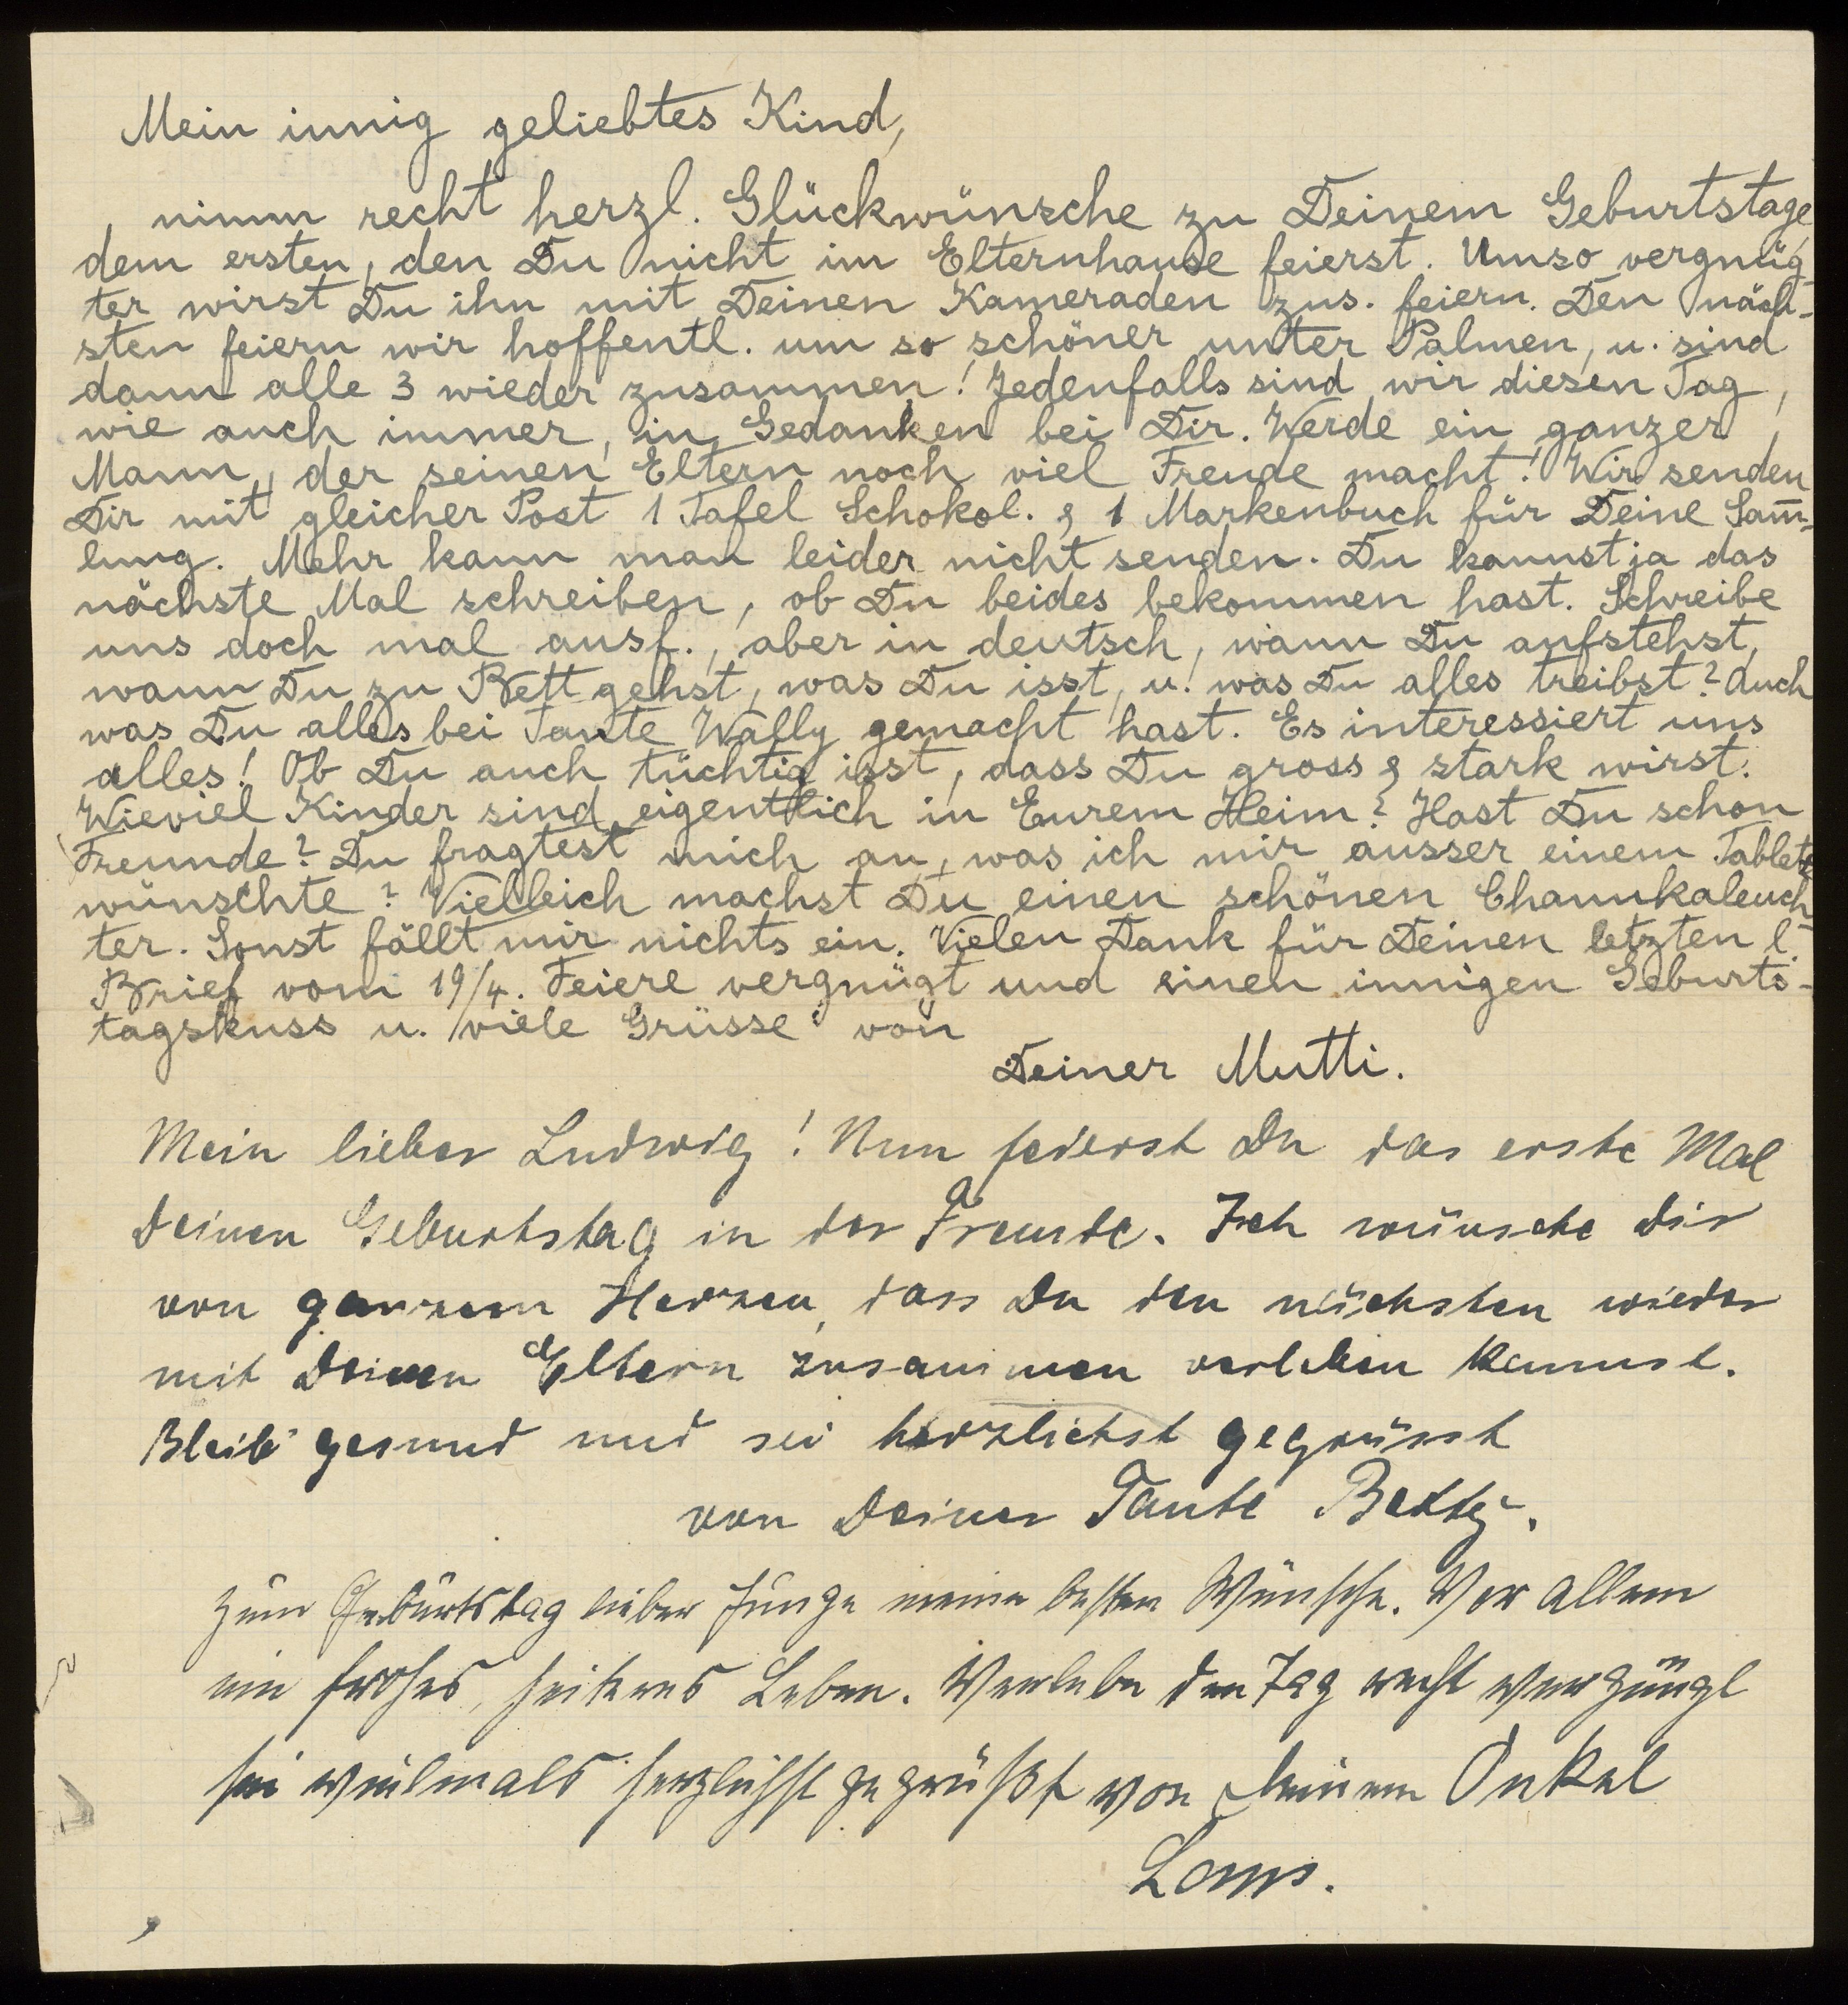 Mein innig geliebtes Kind,
nimm recht herzl. Glückwünsche zu Deinem Geburtstage,
dem ersten, den Du nicht im Elternhause feierst. Umso vergnüg-
ter wirst Du ihn mit Deinen Kameraden zus. feiern. Den näch-
sten feiern wir hoffentl. um so schöner unter Palmen, u. sind
dann alle 3 wieder zusammen! Jedenfalls sind wir diesen Tag,
wie auch immer, in Gedanken bei Dir. Werde ein ganzer
Mann, der seinen Eltern noch viel Freude macht! Wir senden
Dir mit gleicher Post 1 Tafel Schokol. & 1 Markenbuch für Deine Sam̅-
lung. Mehr kann man leider nicht senden. Du kannst ja das
nächste Mal schreiben, ob Du beides bekommen hast. Schreibe
uns doch mal ausf., aber in deutsch, wann Du aufstehst,
wann Du zu Bett gehst, was Du isst, u. was Du alles treibst? Auch
was Du alles bei Tante Wally gemacht hast. Es interessiert uns
alles! Ob Du auch tüchtig isst, dass Du gross & stark wirst.
Wieviel Kinder sind eigentlich in Eurem Heim? Hast Du schon
Freunde? Du fragtest mich an, was ich mir ausser einem Tablett
wünschte? Vielleich machst Du einen schönen Channkaleuch-
ter. Sonst fällt mir nichts ein. Vielen Dank für Deinen letzten l.
Brief vom 19/4. Feiere vergnügt und einen innigen Geburts-
tagskuss u. viele Grüsse von
Deiner Mutti.
Mein lieber Ludwig! Nun feierst Du das erste Mal
Deinen Geburtstag in der Fremde. Ich wünsche Dir
von ganzem Herzen, dass Du den nächsten wieder
mit Deinen Eltern zusammen verleben kannst.
Bleib gesund und sei herzlichst gegrüsst
von Deiner Tante Betty.
Zum Geburtstag lieber Junge meine besten Wünsche. Vor allem
ein frohes, heiteres Leben. Verlebe den Tag recht vergnügt
sei vielmals herzlichst gegrüßt von Deinem Onkel